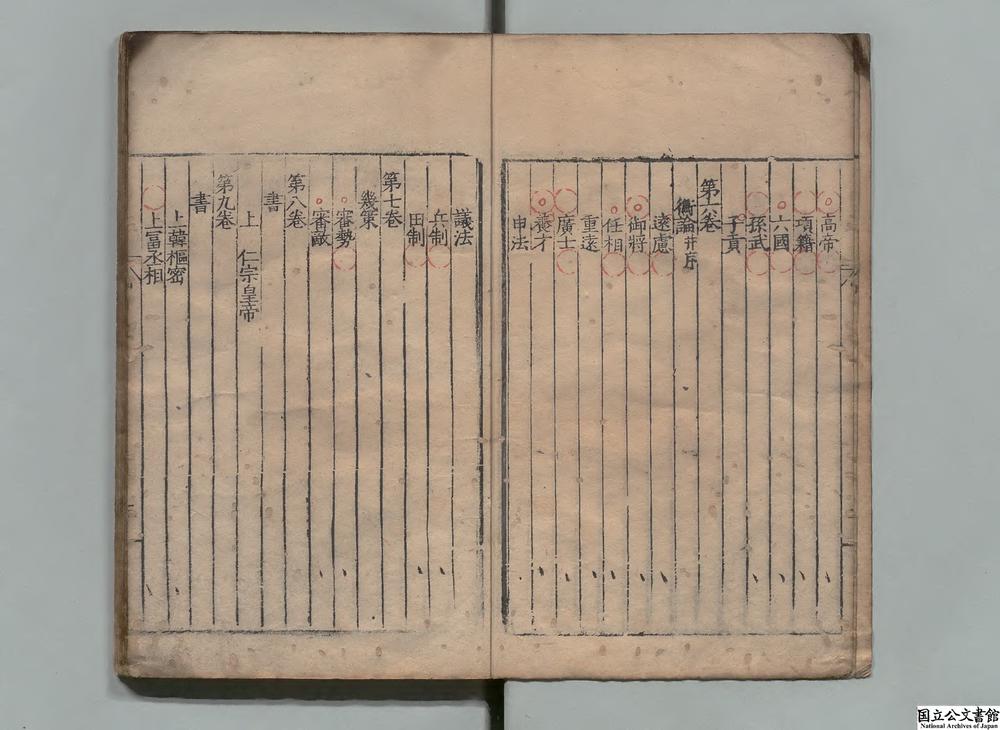 高帝
項籍
六國
孫武
子貢
第 卷
衡論并序
遠慮
御將
任相
重遠
廣士
養才
申法
議法
兵制
田制
第七卷
幾策
審勢
審敵
第八卷
書
上 仁宗皇帝
第九卷
書
上韓樞密
上富丞相
国立公文書館
National Archives of Japan